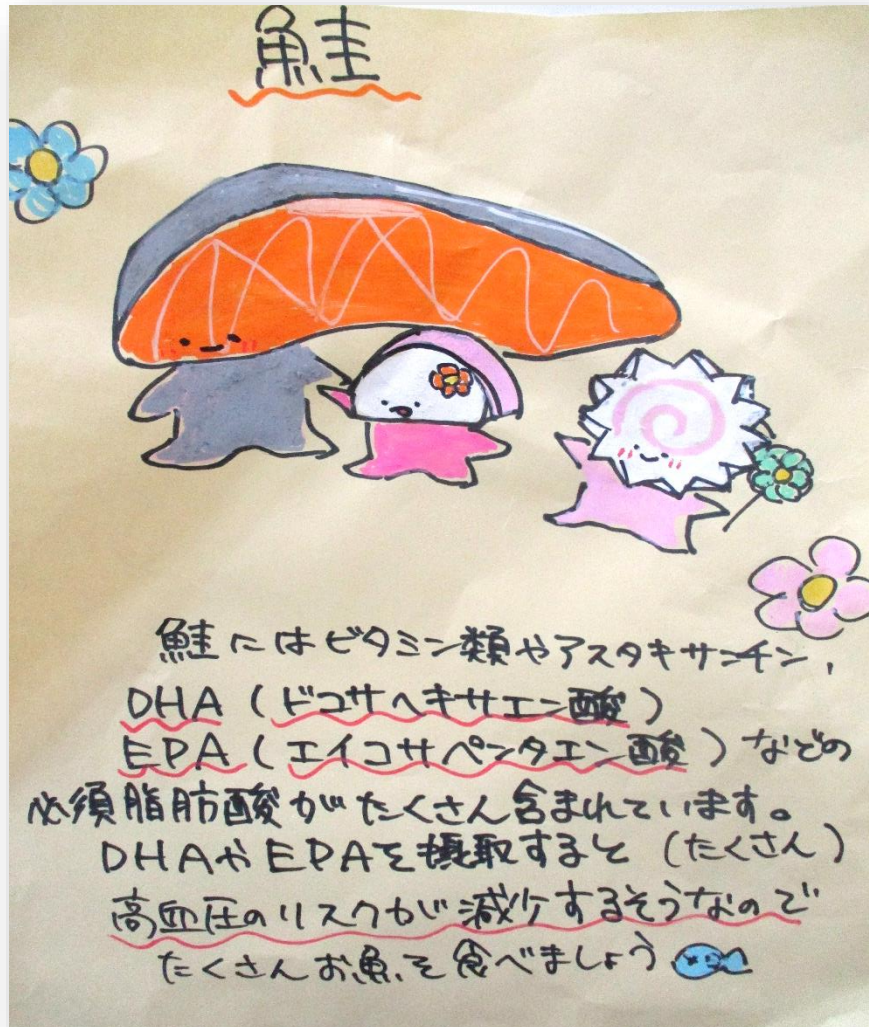 鮭
鮭にはビタミン類やアスタキサンチン,
DHA(ドコサヘキサエン酸)
EPA(エイコサペンタエン酸)などの
必須脂肪酸がたくさん含まれています。
DHAやEPAを摂取すると(たくさん)
高血圧のリスクがが減少するそうなので
たくさんお魚を食べましょう